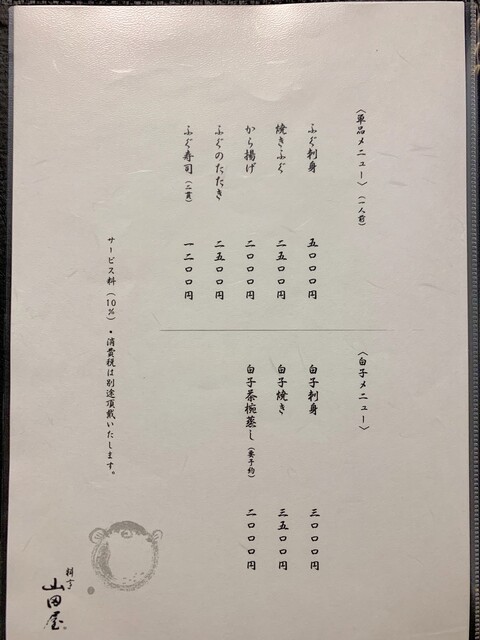 〈単品メニュー〉（一人前）
ふぐ刺身 五〇〇〇円
焼きふぐ 二五〇〇円
から揚げ 二〇〇〇円
ふぐのたたき 二五〇〇円
ふぐ寿司（二貫） 一二〇〇円
〈白子メニュー〉
白子刺身 三〇〇〇円
白子焼き 三五〇〇円
白子茶椀蒸し（要予約） 二〇〇〇円
サービス料（10%）・消費税は別途頂戴いたします。
料亭
山田屋